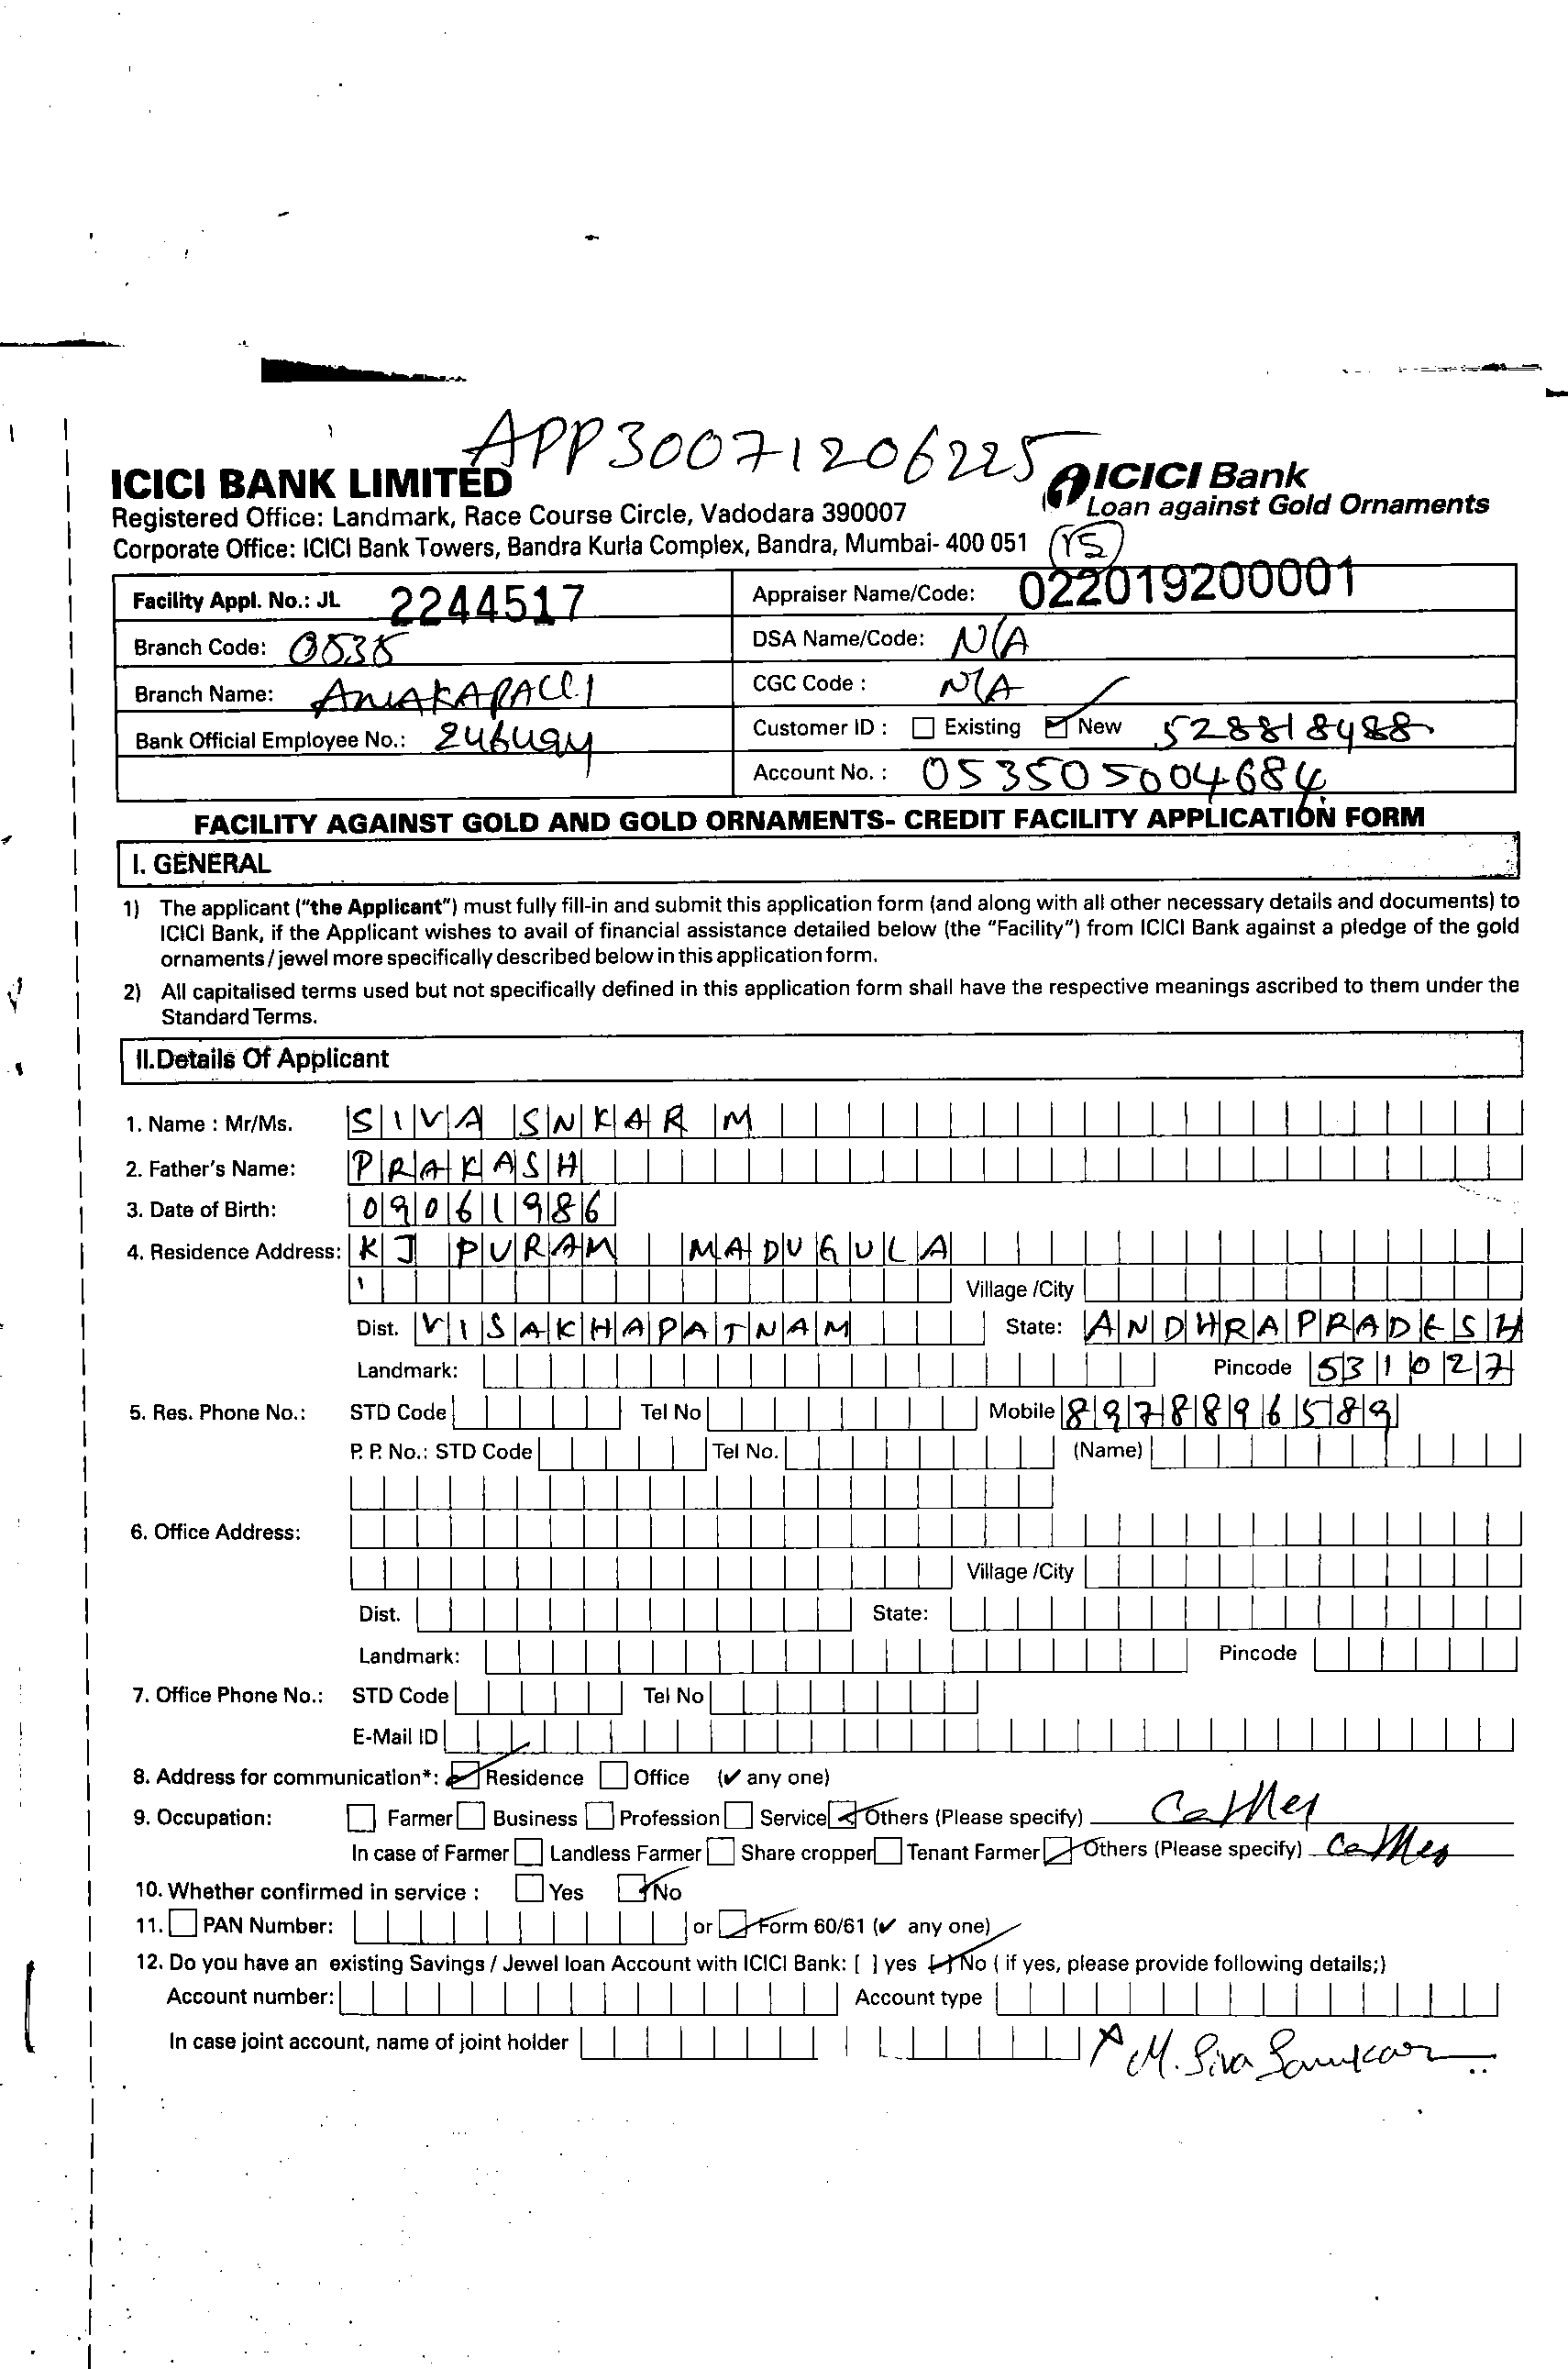 APP30071206225
ICICI BANK LIMITED
ICICI Bank
Registered Office: Landmark, Race Course Circle, Vadodara 390007
Loan against Gold Ornaments
Corporate Office: ICICI Bank Towers, Bandra Kurla Complex, Bandra, Mumbai- 400 051
Facility Appl. No.: JL 2244517 Appraiser Name/Code: 022019200001
Branch Code: 0535 DSA Name/Code: N/A
Branch Name: CGC Code : N/A
Bank Official Employee No.: Customer ID : Existing New 528818488
Account No. : 053505004684
FACILITY AGAINST GOLD AND GOLD ORNAMENTS- CREDIT FACILITY APPLICATION FORM
I. GENERAL
1) The applicant ("the Applicant") must fully fill-in and submit this application form (and along with all other necessary details and documents) to
ICICI Bank, if the Applicant wishes to avail of financial assistance detailed below (the "Facility") from ICICI Bank against a pledge of the gold
ornaments / jewel more specifically described below in this application form.
2) All capitalised terms used but not specifically defined in this application form shall have the respective meanings ascribed to them under the
Standard Terms.
II.Details Of Applicant
1. Name : Mr/Ms. SIVA SNKAR M
2. Father's Name: PRAKASH
3. Date of Birth: 09061986
4. Residence Address: KJ PURAM MADUGULA
Village /City
Dist. VISAKHAPATNAM State: ANDHRAPRADESH
Landmark: Pincode 531027
5. Res. Phone No.: STD Code Tel No Mobile 8978896589
P. P. No.: STD Code Tel No. (Name)
6. Office Address:
Village /City
Dist. State:
Landmark: Pincode
7. Office Phone No.: STD Code Tel No
E-Mail ID
8. Address for communication*: Residence Office (✓ any one)
9. Occupation: Farmer Business Profession Service Others (Please specify)
In case of Farmer Landless Farmer Share cropper Tenant Farmer Others (Please specify)
10. Whether confirmed in service : Yes No
11. PAN Number: or Form 60/61 (✓ any one)
12. Do you have an existing Savings / Jewel loan Account with ICICI Bank: [ ] yes [ ] No ( if yes, please provide following details;)
Account number: Account type
In case joint account, name of joint holder
M. Siva Sankar